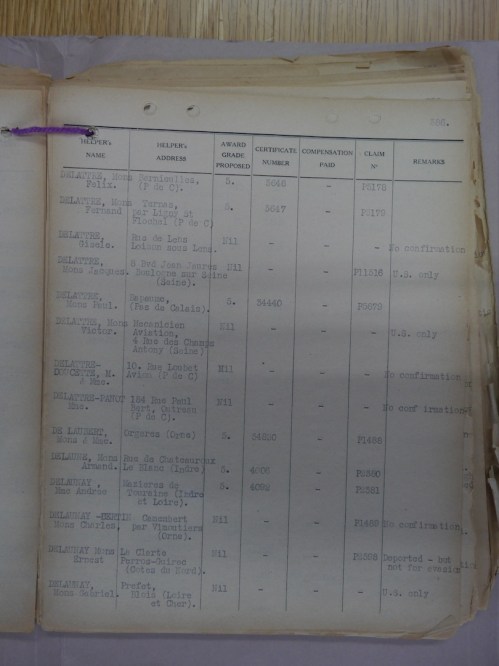 HELPER's NAME HELPER's ADDRESS AWARD GRADE PROPOSED CERTIFICATE NUMBER COMPENSATION PAID CLAIM No REMARKS
DELATTRE, Mons Hermicelles, 5. - 
Felix. (P de C).
DELATTRE, Mons Ternas, 5. 5047 -
Fernand par Ligny St
Flochel (P de C)
DELATTRE, Rue de Lens Nil - - - No confirmation
Gisele. Loison sous Lens.
DELATTRE, 8 Bvd Jean Jaures Nil - - F11516 U.S. only
Mons Jacques. Boulogne sur Seine
(Seine).
DELATTRE, Bapaume, 5. 54440 -
Mons Paul. (Pas de Calais).
DELATTRE, Mons Mecanicien Nil - - - U.S. only
Victor. Aviation,
4 Rue des Champs
Antony (Seine)
DELATTRE- 10. Rue Loubet Nil - - - No confirmation
DOUCETTE, M. Avion (P de C)
& Mme.
DELATTRE-PANOT 184 Rue Paul Nil - - - No confirmation
Mme. Bert, Ostreux
(P de C).
DE LAUBERT, Orgeres (Orne) 5. -
Mons & Mme.
DELAUME, Mons Rue de Chateauroux
Armand. Le Blanc (Indre) 5. -
DELAUNAY, Mazieres de 5. -
Mme Andree Touraine (Indre
et Loire).
DELAUNAY -BERTIN Camembert Nil - - No confirmation
Mons Charles. par Vimoutiers
(Orne).
DELAUNAY Mons La Clarte Nil - - Deported - but
Ernest Perros-Guirec not for evasion
(Cotes du Nord).
DELAUNAY, Prefet, Nil - - - U.S. only
Mons Gabriel. Blois (Loire
et Cher).